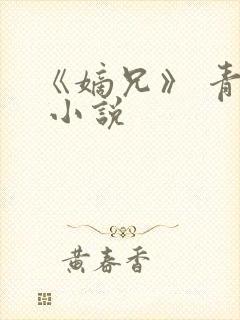 《嫡兄》 青
小說
黄春香